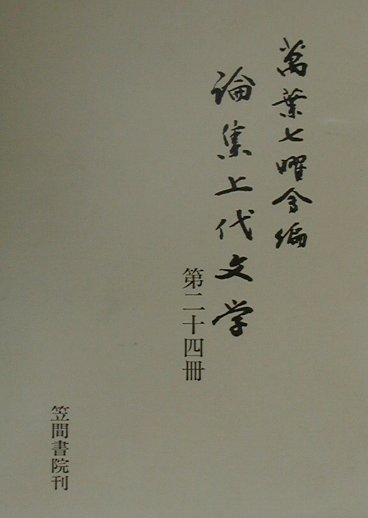 萬葉七曜会編
論集上代文学
第二十四冊
笠間書院刊